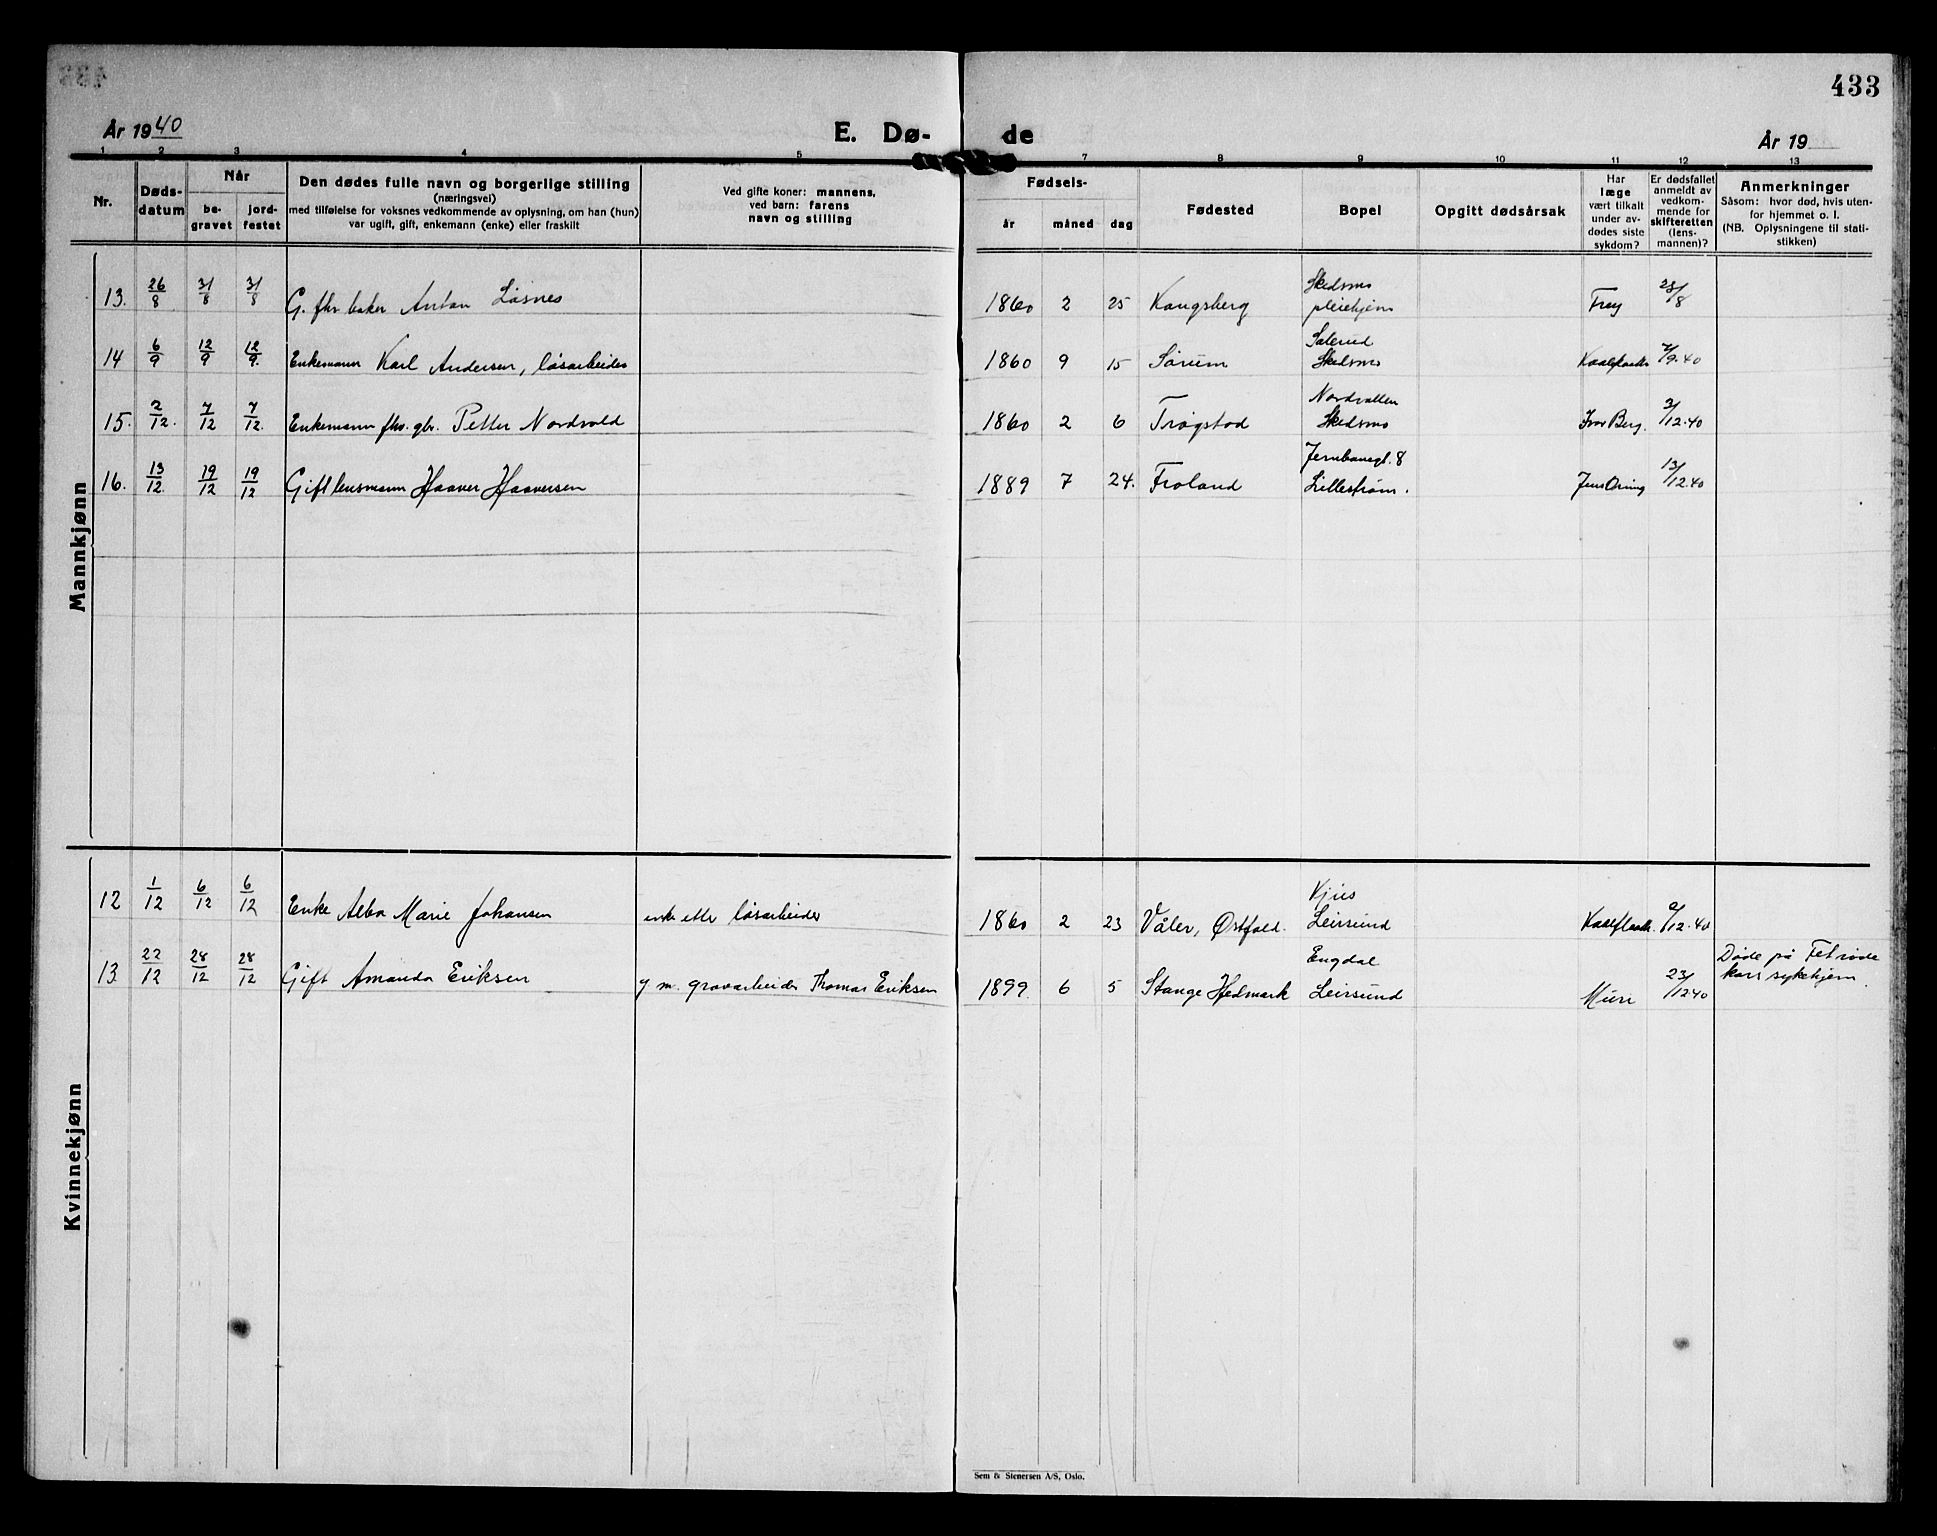 433
År 1940
E. Dø-
de
År 19
1 2 3 4 5 7 8 9 10 11 12 13
Nr.
Døds-
datum
Når
be-
gravet
jord-
festet
Den dødes fulle navn og borgerlige stilling
(næringsvei)
med tilføielse for voksnes vedkommende av oplysning, om han (hun)
var ugift, gift, enkemann (enke) eller fraskilt
Ved gifte koner: mannens,
ved barn: farens
navn og stilling
Fødsels-
år måned dag
Fødested
Bopel
Opgitt dødsårsak
Har
læge
vært tilkalt
under av-
dødes siste
sykdom?
Er dødsfallet
anmeldt av
vedkom-
mende for
skifteretten
(lens-
mannen)?
Anmerkninger
Såsom: hvor død, hvis uten-
for hjemmet o. l.
(NB. Oplysningene til stati-
stikken)
Mannkjønn
Skedsmo
13. 26/8 31/8 31/8 G. fhv. baker Anton Løsnes 1860 2 25 Kongsberg pleiehjem Frey 28/8
Salerud
14 6/9 12/9 12/9. Enkemann Karl Andersen, løsarbeider 1860 9 15 Sørum Skedsmo 7/9.40
Nordvollen
15. 2/12. 7/12 7/12. Enkemann fhv. gbr. Petter Nordvold 1860 2 6 Trøgstad Skedsmo Ivar Berg. 3/12.40
Jernbanegt. 8
16. 13/12. 19/12 19/12 Gift lensmann Haaver Haaversen 1889 7 24. Froland Lillestrøm. 13/12.40
Kvinnekjønn
12 1/12 6/12 6/12 Enke Alba Marie Johansen enke etter løsarbeider 1860 2 23 Våler, Østfold. Leirsund 2/12.40
Engdal
Døde på Fet røde
13 22/12 28/12 28/12 Gift Amanda Eriksen g m. gravarbeider Thomas Eriksen 1899. 6 5 Stange Hedmark Leirsund 23/12.40 kors sykehjem.
Sem & Stenersen A/S, Oslo.